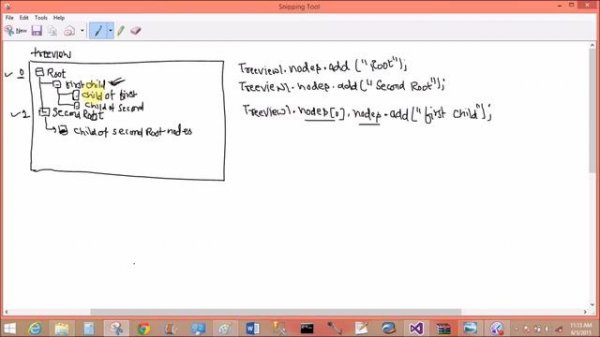 Snipping Tool
File Edit Tools Help
treeview
0 Root
First child
child of first
child of second
1 Second Root
child of second Root nodes
Treeview1.nodes.add ("Root");
Treeview1.nodes.add ("Second Root");
Treeview1.nodes[0].nodes.add ("first child");
11:15 AM
6/3/2015